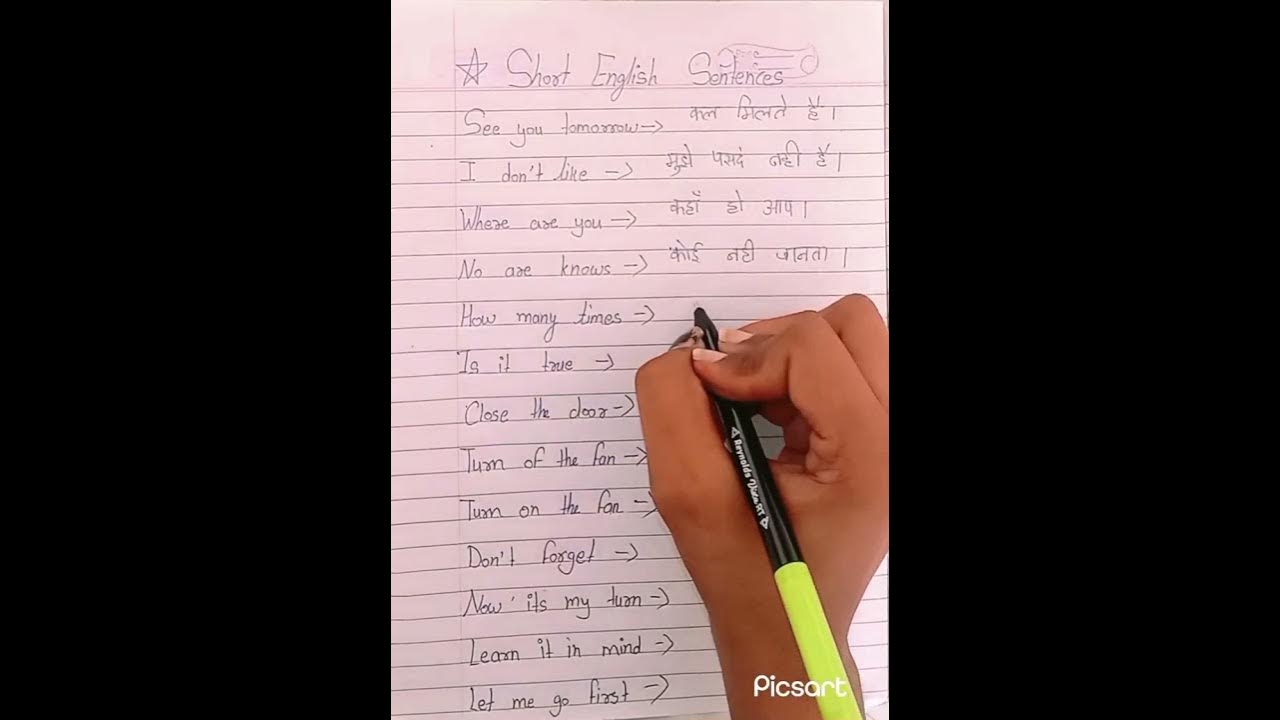 ☆ Short English Sentences
See you tomorrow → कल मिलते हैं।
I don't like → मुझे पसदं नही है।
Where are you → कहाँ हो आप।
No are knows → कोई नही जानता।
How many times →
Is it true →
Close the door →
Turn of the fan →
Turn on the fan →
Don't forget →
Now its my turn →
Learn it in mind →
Let me go first →
Reynolds
Picsart